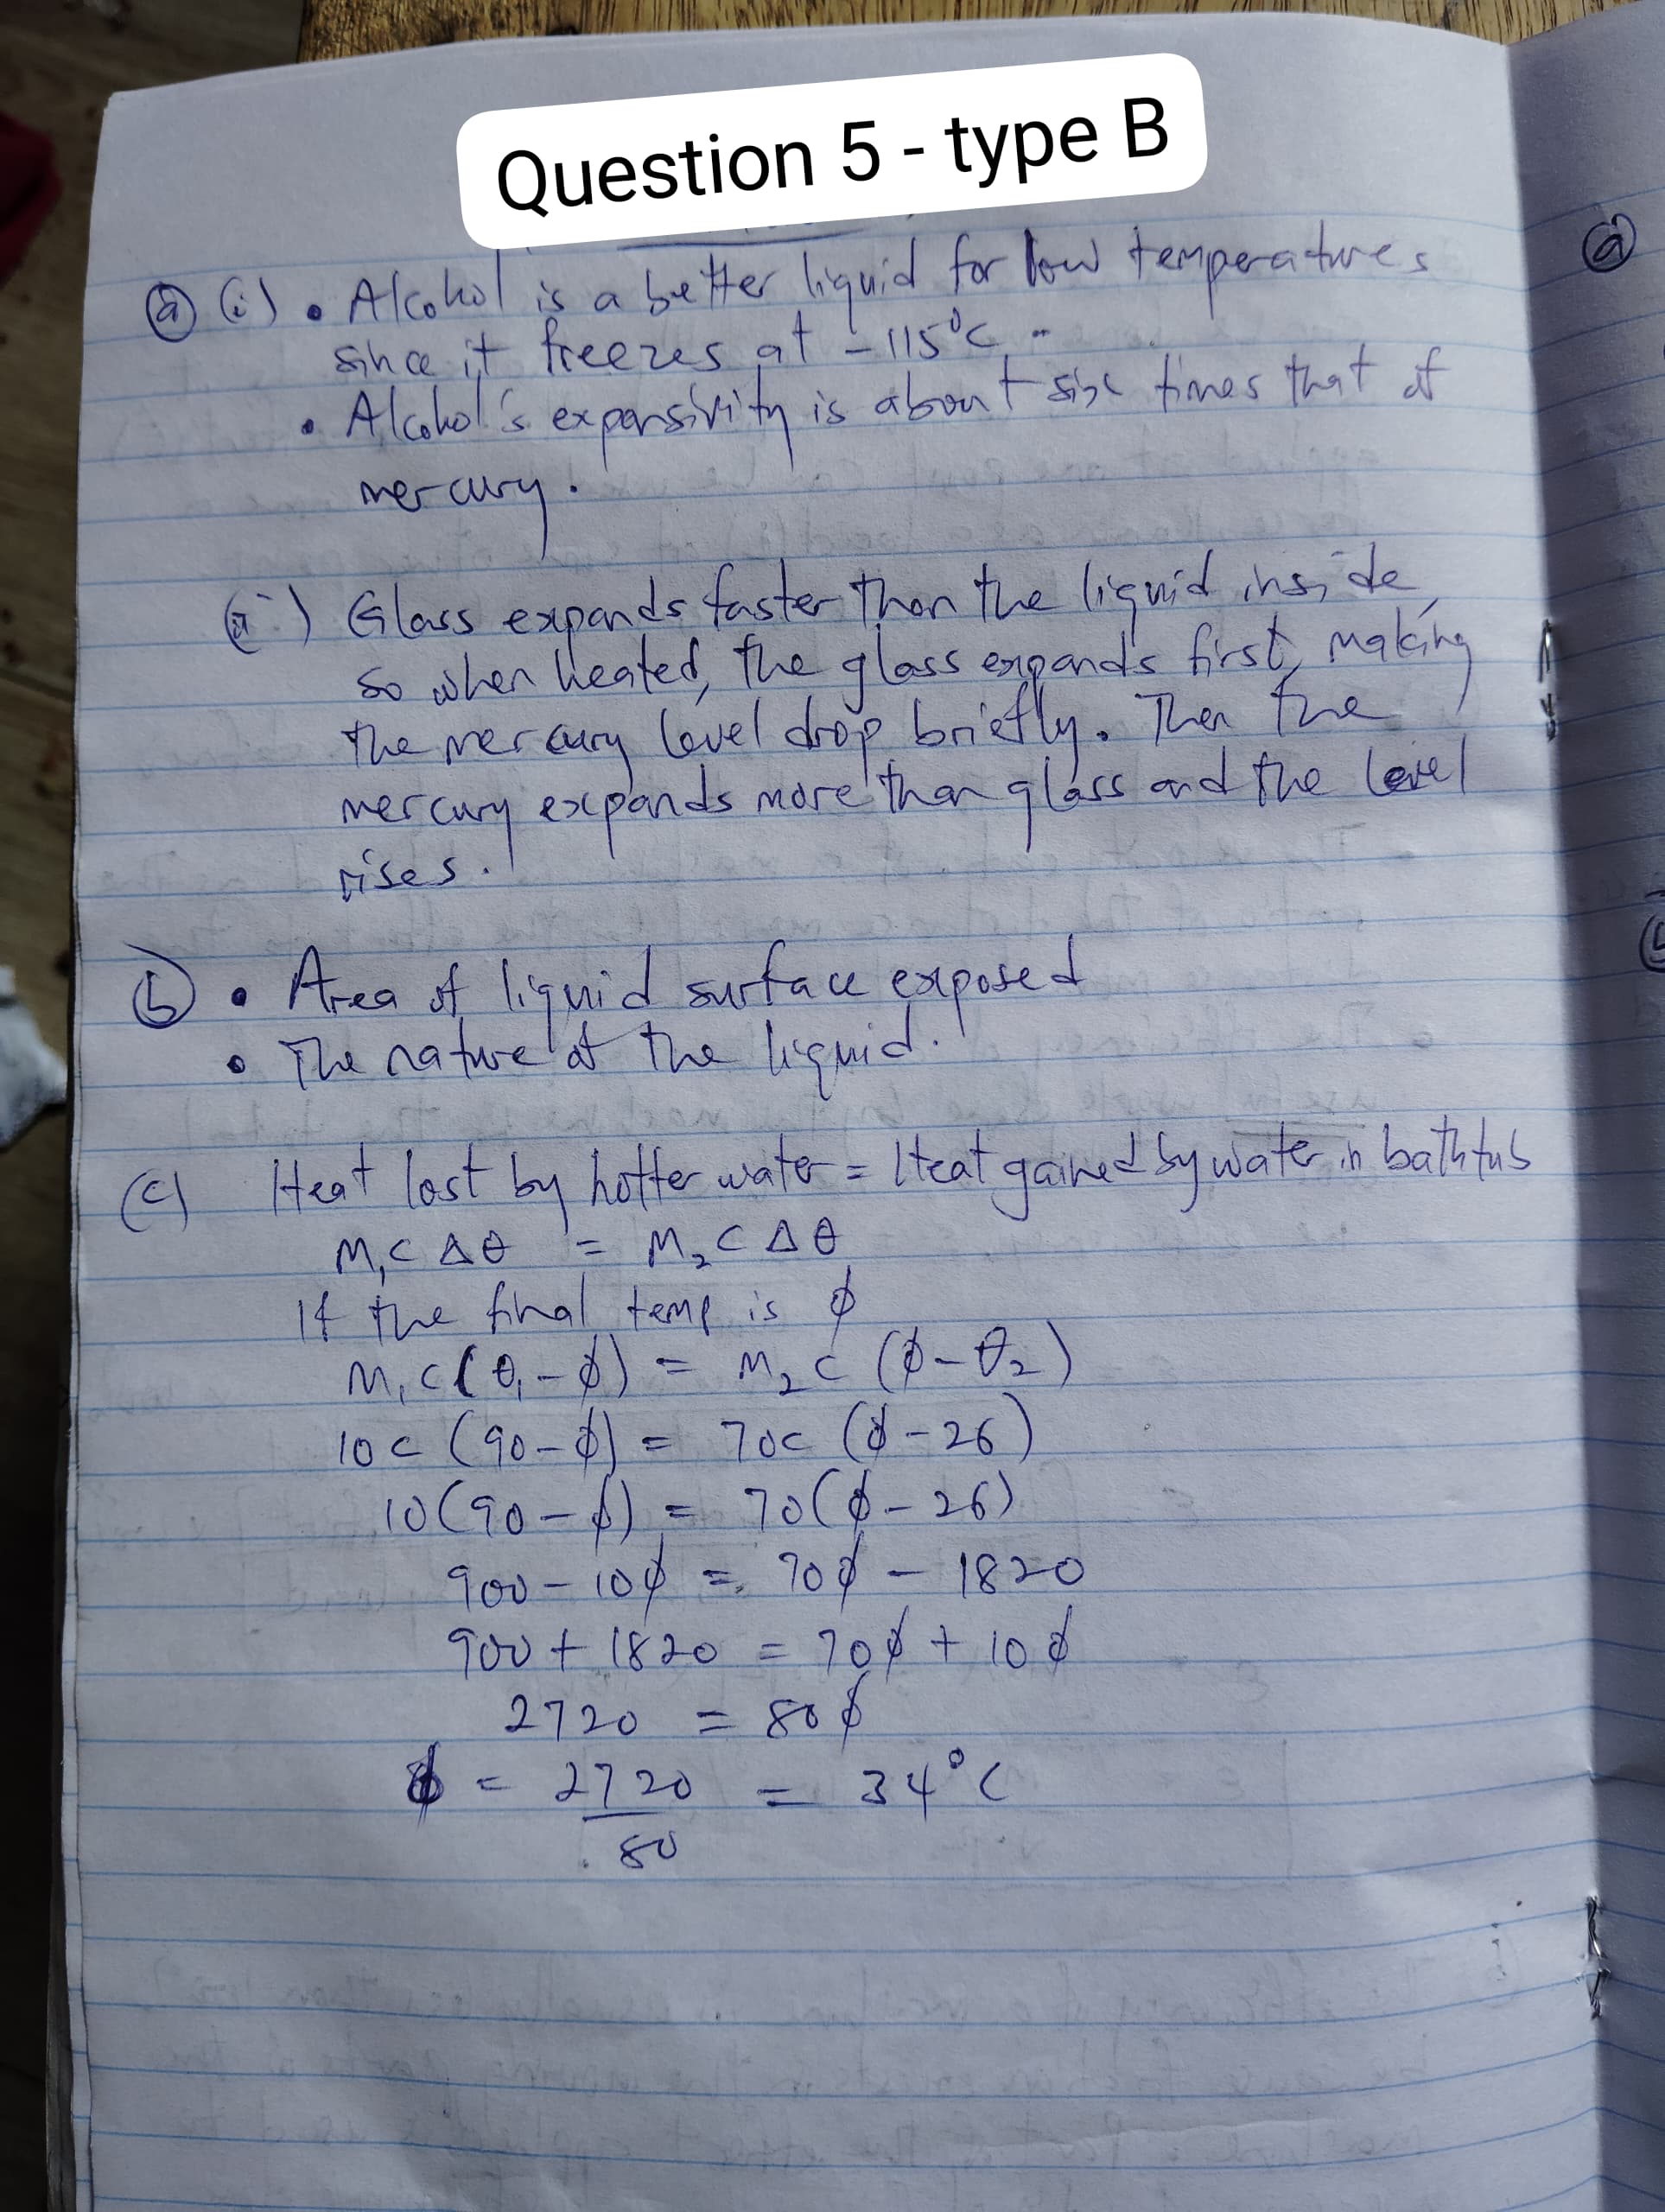 Question 5 - type B
ⓐ (i) • Alcohol is a better liquid for low temperatures
since it freezes at -115°C.
• Alcohol's expansivity is about six times that of
mercury.
(ii) Glass expands faster than the liquid inside,
so when heated, the glass expands first, making
the mercury level drop briefly. Then the
mercury expands more than glass and the level
rises.
ⓑ • Area of liquid surface exposed
• The nature of the liquid.
(c) Heat lost by hotter water = Heat gained by water in bathtub
M₁C Δθ = M₂C Δθ
If the final temp is ϕ
M₁C(θ₁-ϕ) = M₂C (ϕ-θ₂)
10c (90-ϕ) = 70c (ϕ-26)
10(90-ϕ) = 70(ϕ-26)
900-10ϕ = 70ϕ - 1820
900+1820 = 70ϕ + 10ϕ
2720 = 80ϕ
ϕ = 2720 = 34°C
80
ⓐ